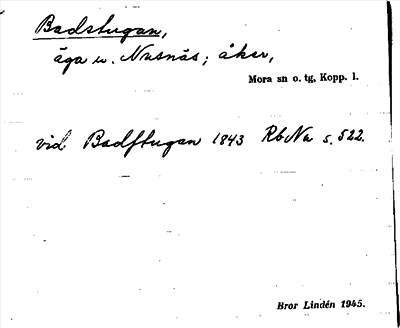 Badstugan,
äga u. Nusnäs; åker,
Mora sn o. tg, Kopp. l.
vid Badſtugan 1843 RbNa s. 522.
Bror Lindén 1945.